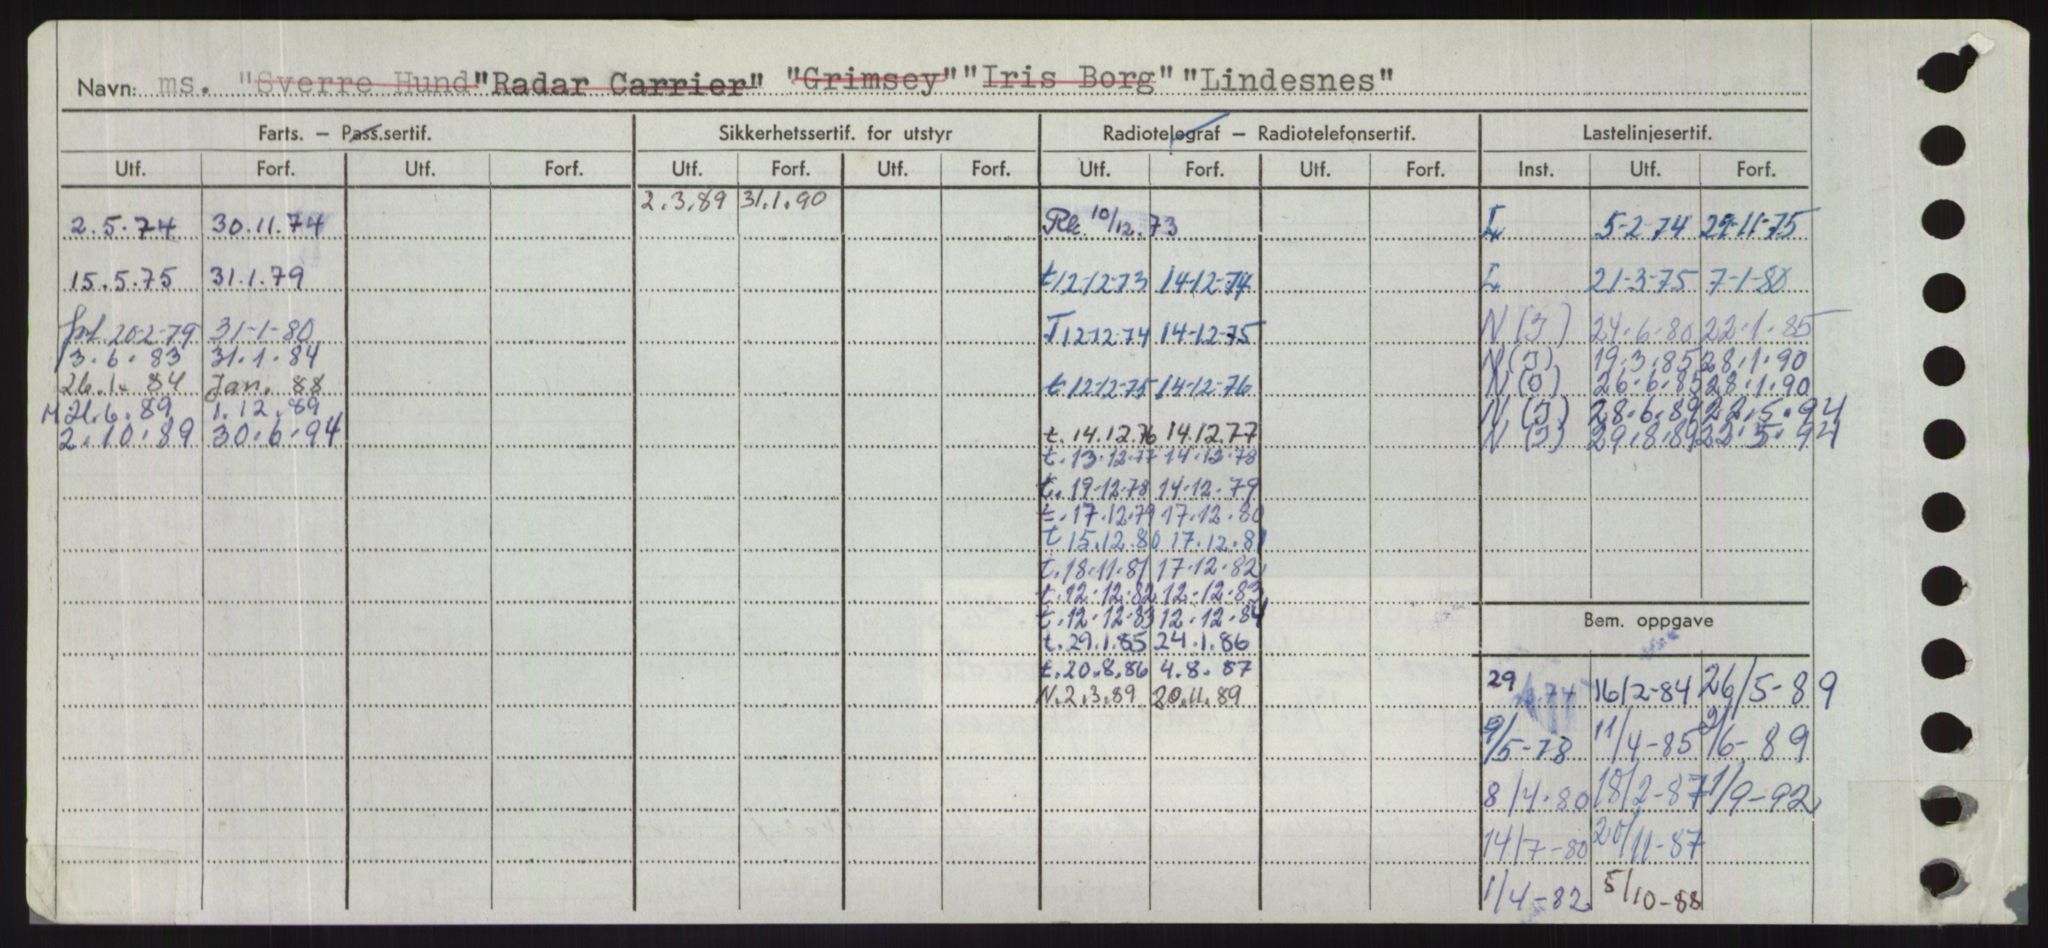 Navn: ms. "Sverre Hund" "Radar Carrier" "Grimsey" "Iris Borg" "Lindesnes"
Farts. — Pass.sertif. Sikkerhetssertif. for utstyr Radiotelegraf — Radiotelefonsertif. Lastelinjesertif.
Utf. Forf. Utf. Forf. Utf. Forf. Utf. Forf. Utf. Forf. Utf. Forf. Inst. Utf. Forf.
2.3.89 31.1.90
2.5.74 30.11.74 Rk. 10/12.73 I 5-2-74 29-11-75
15.5.75 31.1.79 t 12-12-73 14-12-74 I 21-3-75 7-1-80
forl. 20-2-79 31-1-80 T 12-12-74 14-12-75 N(I) 24.6.80 22.1.85
3.6.83 31.1.84 N(I) 19.3.85 28.1.90
26.1.84 Jan. 88 t. 12-12-75 14-12-76 N(O) 26.6.85 28.1.90
M 21.6.89 1.12.89 N(I) 28.6.89 22.5.94
2.10.89 30.6.94 t. 14.12.76 14.12.77 N(I) 29.8.89 22.5.94
t. 13.12.77 14.12.78
t. 19.12.78 14.12.79
t. 17.12.79 17.12.80
t 15.12.80 17.12.81
t. 18.11.81 17.12.82
t. 12.12.82 12.12.83
t. 12.12.83 12.12.84
Bem. oppgave
t. 29.1.85 24.1.86
t. 20.8.86 4.8.87
N. 2.3.89 20.11.89
29 16/2-84 26/5-89
9/5-78 11/4-85 9/6-89
8/4-80 18/2-87 1/9-92
14/7-80 20/11-87
1/4-82 5/10-88